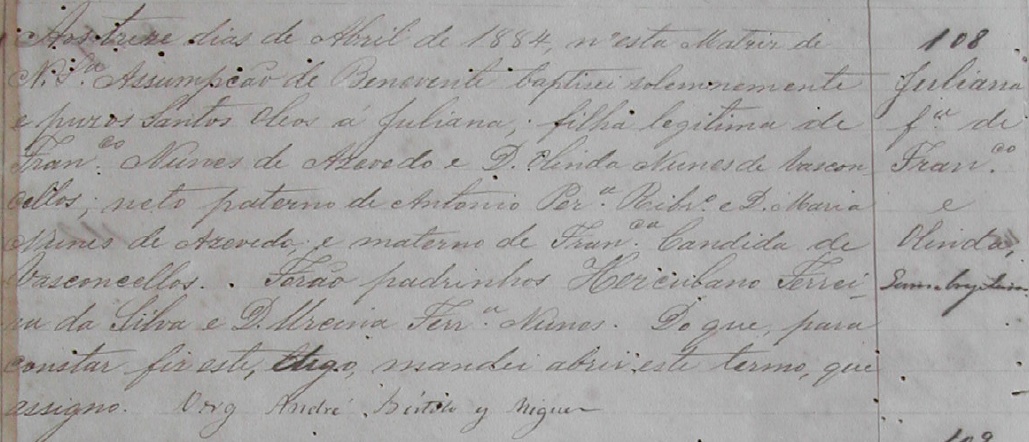 Aos treze dias de Abril de 1884, n'esta Matriz de
N. Srª. Assumpção de Benevente baptisei solemnemente
e puz os Santos Oleos á Juliana, filha legitima de
Fran.co Nunes de Azevedo e D. Olinda Nunes de Vascon
cellos; neto paterno de Antonio Per.ª Ribr.º e D. Maria
Nunes de Azevedo; e materno de Fran.ca Candida de
Vasconcellos. . Forão padrinhos Herculano Ferrei-
ra da Silva e D. Urcina Ferr.ª Nunes. Do que, para
constar fiz este, digo, mandei abrir este termo, que
assigno. Vig André
108
Juliana
f.ª de
Fran.co
e
Olinda,
109